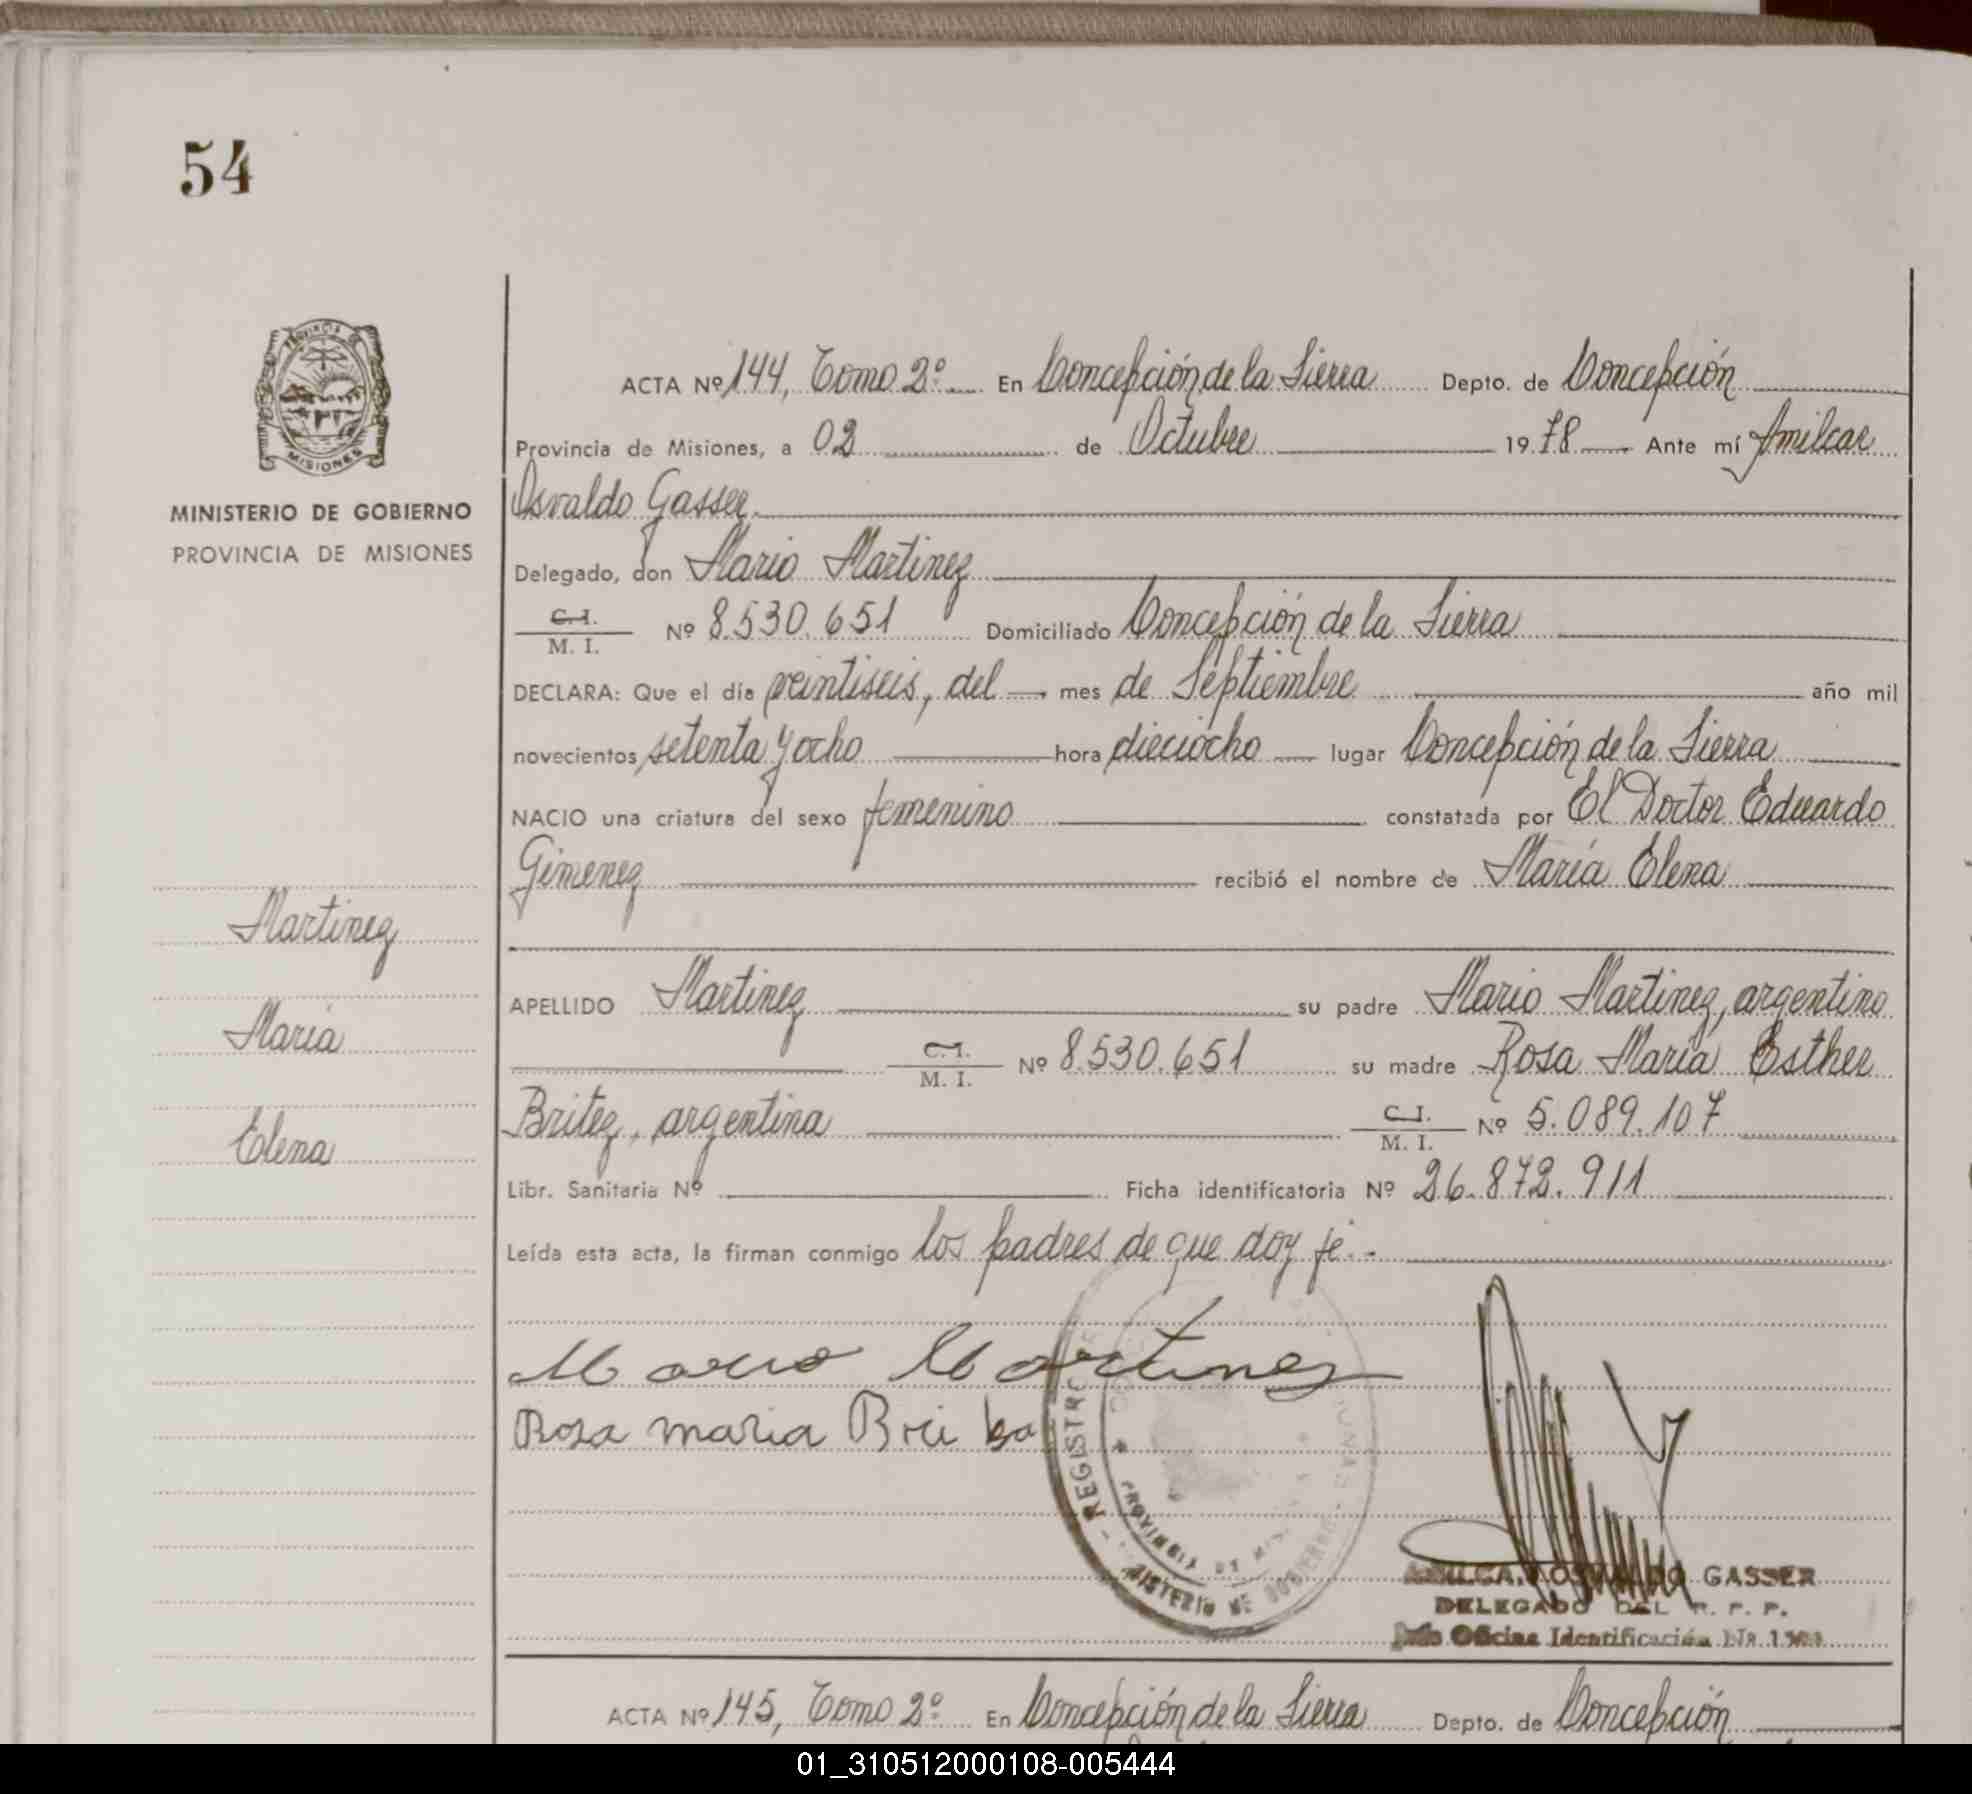 54
PROVINCIA DE
MISIONES
MINISTERIO DE GOBIERNO
PROVINCIA DE MISIONES
Martinez
María
Elena
ACTA Nº 144, Tomo 2º En Concepción de la Sierra Depto. de Concepción
Provincia de Misiones, a 02 de Octubre 1978 Ante mí Amilcar
Osvaldo Gasser
Delegado, don Mario Martinez
C. I.
M. I. Nº 8.530.651 Domiciliado Concepción de la Sierra
DECLARA: Que el día veintiseis, del mes de Septiembre año mil
novecientos setenta y ocho hora dieciocho lugar Concepción de la Sierra
NACIO una criatura del sexo femenino constatada por El Doctor Eduardo
Gimenez recibió el nombre de María Elena
APELLIDO Martinez su padre Mario Martinez, argentino
C. I.
M. I. Nº 8.530.651 su madre Rosa María Esther
Britez, argentina C. I.
M. I. Nº 5.089.107
Libr. Sanitaria Nº Ficha identificatoria Nº 26.872.911
Leída esta acta, la firman conmigo los padres de que doy fé.-
Mario Martinez
Rosa maria
REGISTRO
PROVINCIA DE
MINISTERIO DE GOBIERNO
AMILCAR OSVALDO GASSER
DELEGADO DEL R. P. P.
Oficina Identificación Nº
ACTA Nº 145, Tomo 2º En Concepción de la Sierra Depto. de Concepción
01_310512000108-005444